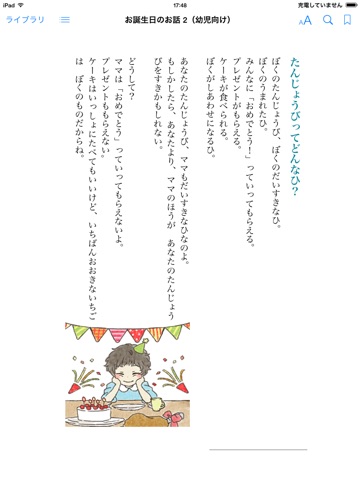 iPad
17:48
充電していません
ライブラリ
お誕生日のお話 2（幼児向け）
AA
たんじょうびってどんなひ？
ぼくのたんじょうび、ぼくのだいすきなひ。
ぼくのうまれたひ。
みんなに「おめでとう！」っていってもらえる。
プレゼントがもらえる。
ケーキが食べられる。
ぼくがしあわせになるひ。
あなたのたんじょうび、ママもだいすきなひなのよ。
もしかしたら、あなたより、ママのほうが　あなたのたんじょう
びをすきかもしれない。
どうして？
ママは「おめでとう」っていってもらえないよ。
プレゼントももらえない。
ケーキはいっしょにたべてもいいけど、いちばんおおきないちご
は　ぼくのものだからね。